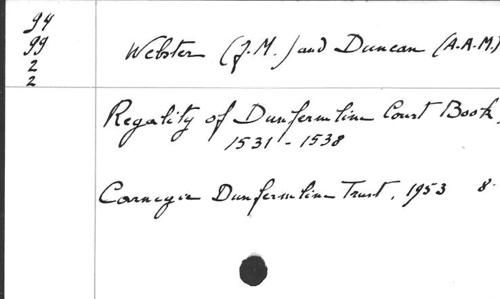 94
99
2
2
Webster (J.M.) and Duncan (A.A.M.)
Regality of Dunfermline Court Book,
1531-1538
Carnegie Dunfermline Trust, 1953 8.